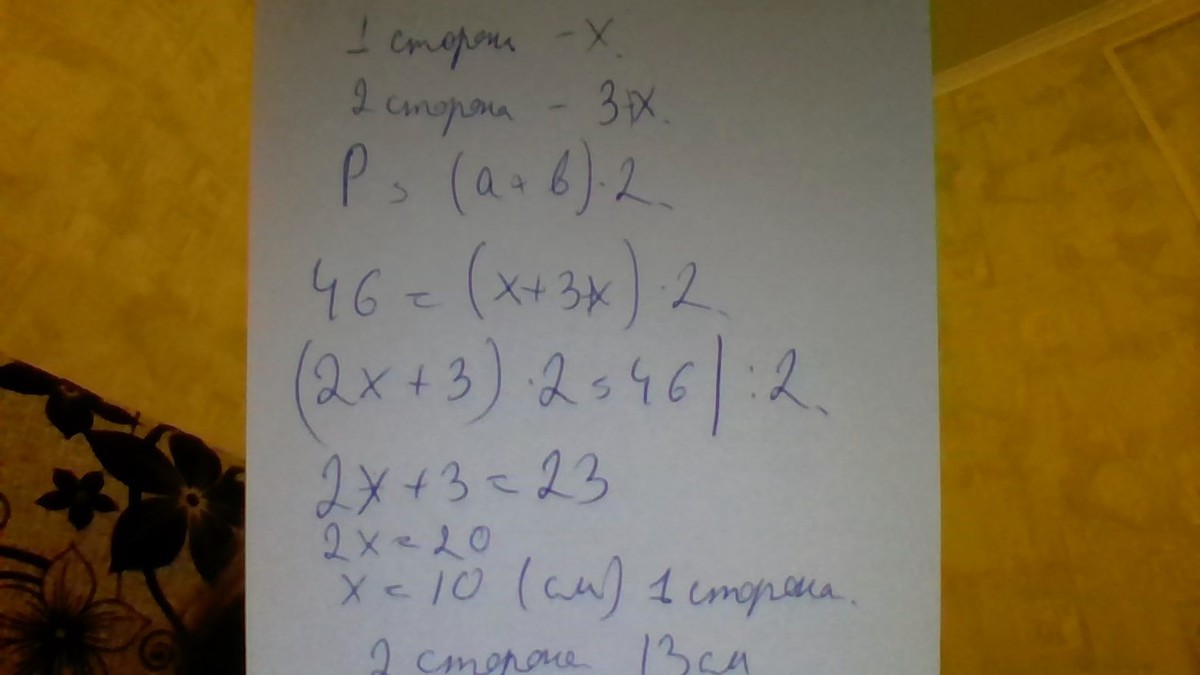 1 сторона - x.
2 сторона - 3+x.
P = (a + b) · 2.
46 = (x+3+x) · 2.
(2x + 3) · 2 = 46 | : 2.
2x + 3 = 23
2x = 20
x = 10 (см) 1 сторона.
2 сторона 13 см